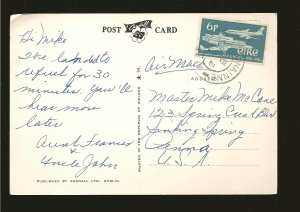 POST CARD
6P
éire
Hi Mike
We landed to
refuel for 30
minutes. You'll
hear more
later
Aunt Frances &
Uncle John
Air Mail
ADDRESS
Master Mike McCane
123 Spring Crest Blvd
Sinking Spring
Penna
U.S.A
PUBLISHED BY CARDALL LTD., DUBLIN.
PRINTED IN THE REPUBLIC OF IRELAND